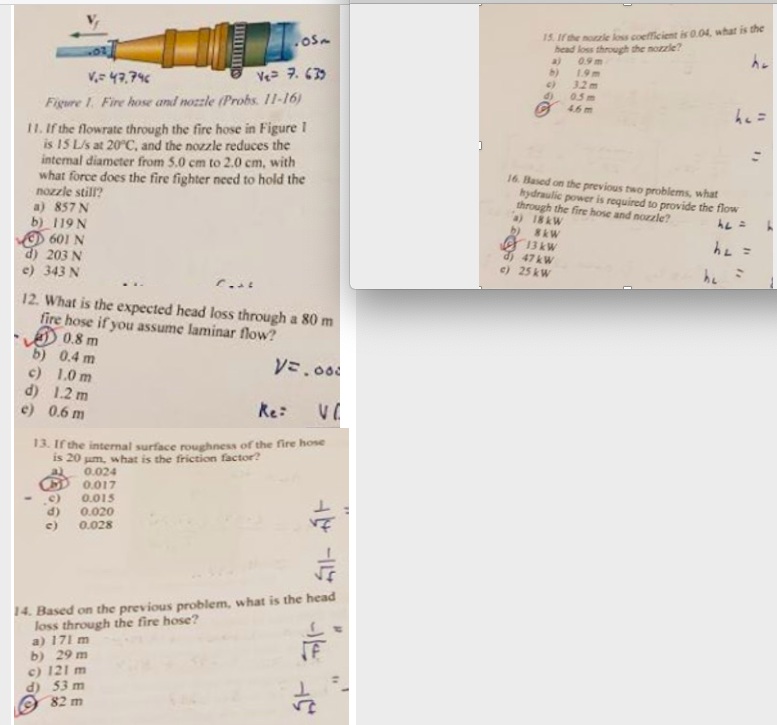 Vf
.02
.05m
V₁= 47.746
V₂= 7.639
Figure 1. Fire hose and nozzle (Probs. 11-16)
11. If the flowrate through the fire hose in Figure 1
is 15 L/s at 20°C, and the nozzle reduces the
internal diameter from 5.0 cm to 2.0 cm, with
what force does the fire fighter need to hold the
nozzle still?
a) 857 N
b) 119 N
c) 601 N
d) 203 N
e) 343 N
12. What is the expected head loss through a 80 m
fire hose if you assume laminar flow?
a) 0.8 m
b) 0.4 m
c) 1.0 m
d) 1.2 m
e) 0.6 m
V=.000
Re=
13. If the internal surface roughness of the fire hose
is 20 µm, what is the friction factor?
a) 0.024
b) 0.017
c) 0.015
d) 0.020
e) 0.028
1/√f =
1/√f
14. Based on the previous problem, what is the head
loss through the fire hose?
a) 171 m
b) 29 m
c) 121 m
d) 53 m
e) 82 m
1/√f =
1/√f =
15. If the nozzle loss coefficient is 0.04, what is the
head loss through the nozzle?
a) 0.9 m
b) 1.9 m
c) 3.2 m
d) 0.5 m
e) 4.6 m
hL
hL =
=
16. Based on the previous two problems, what
hydraulic power is required to provide the flow
through the fire hose and nozzle?
a) 18 kW
b) 8 kW
c) 13 kW
d) 47 kW
e) 25 kW
hL =
hL =
hL =